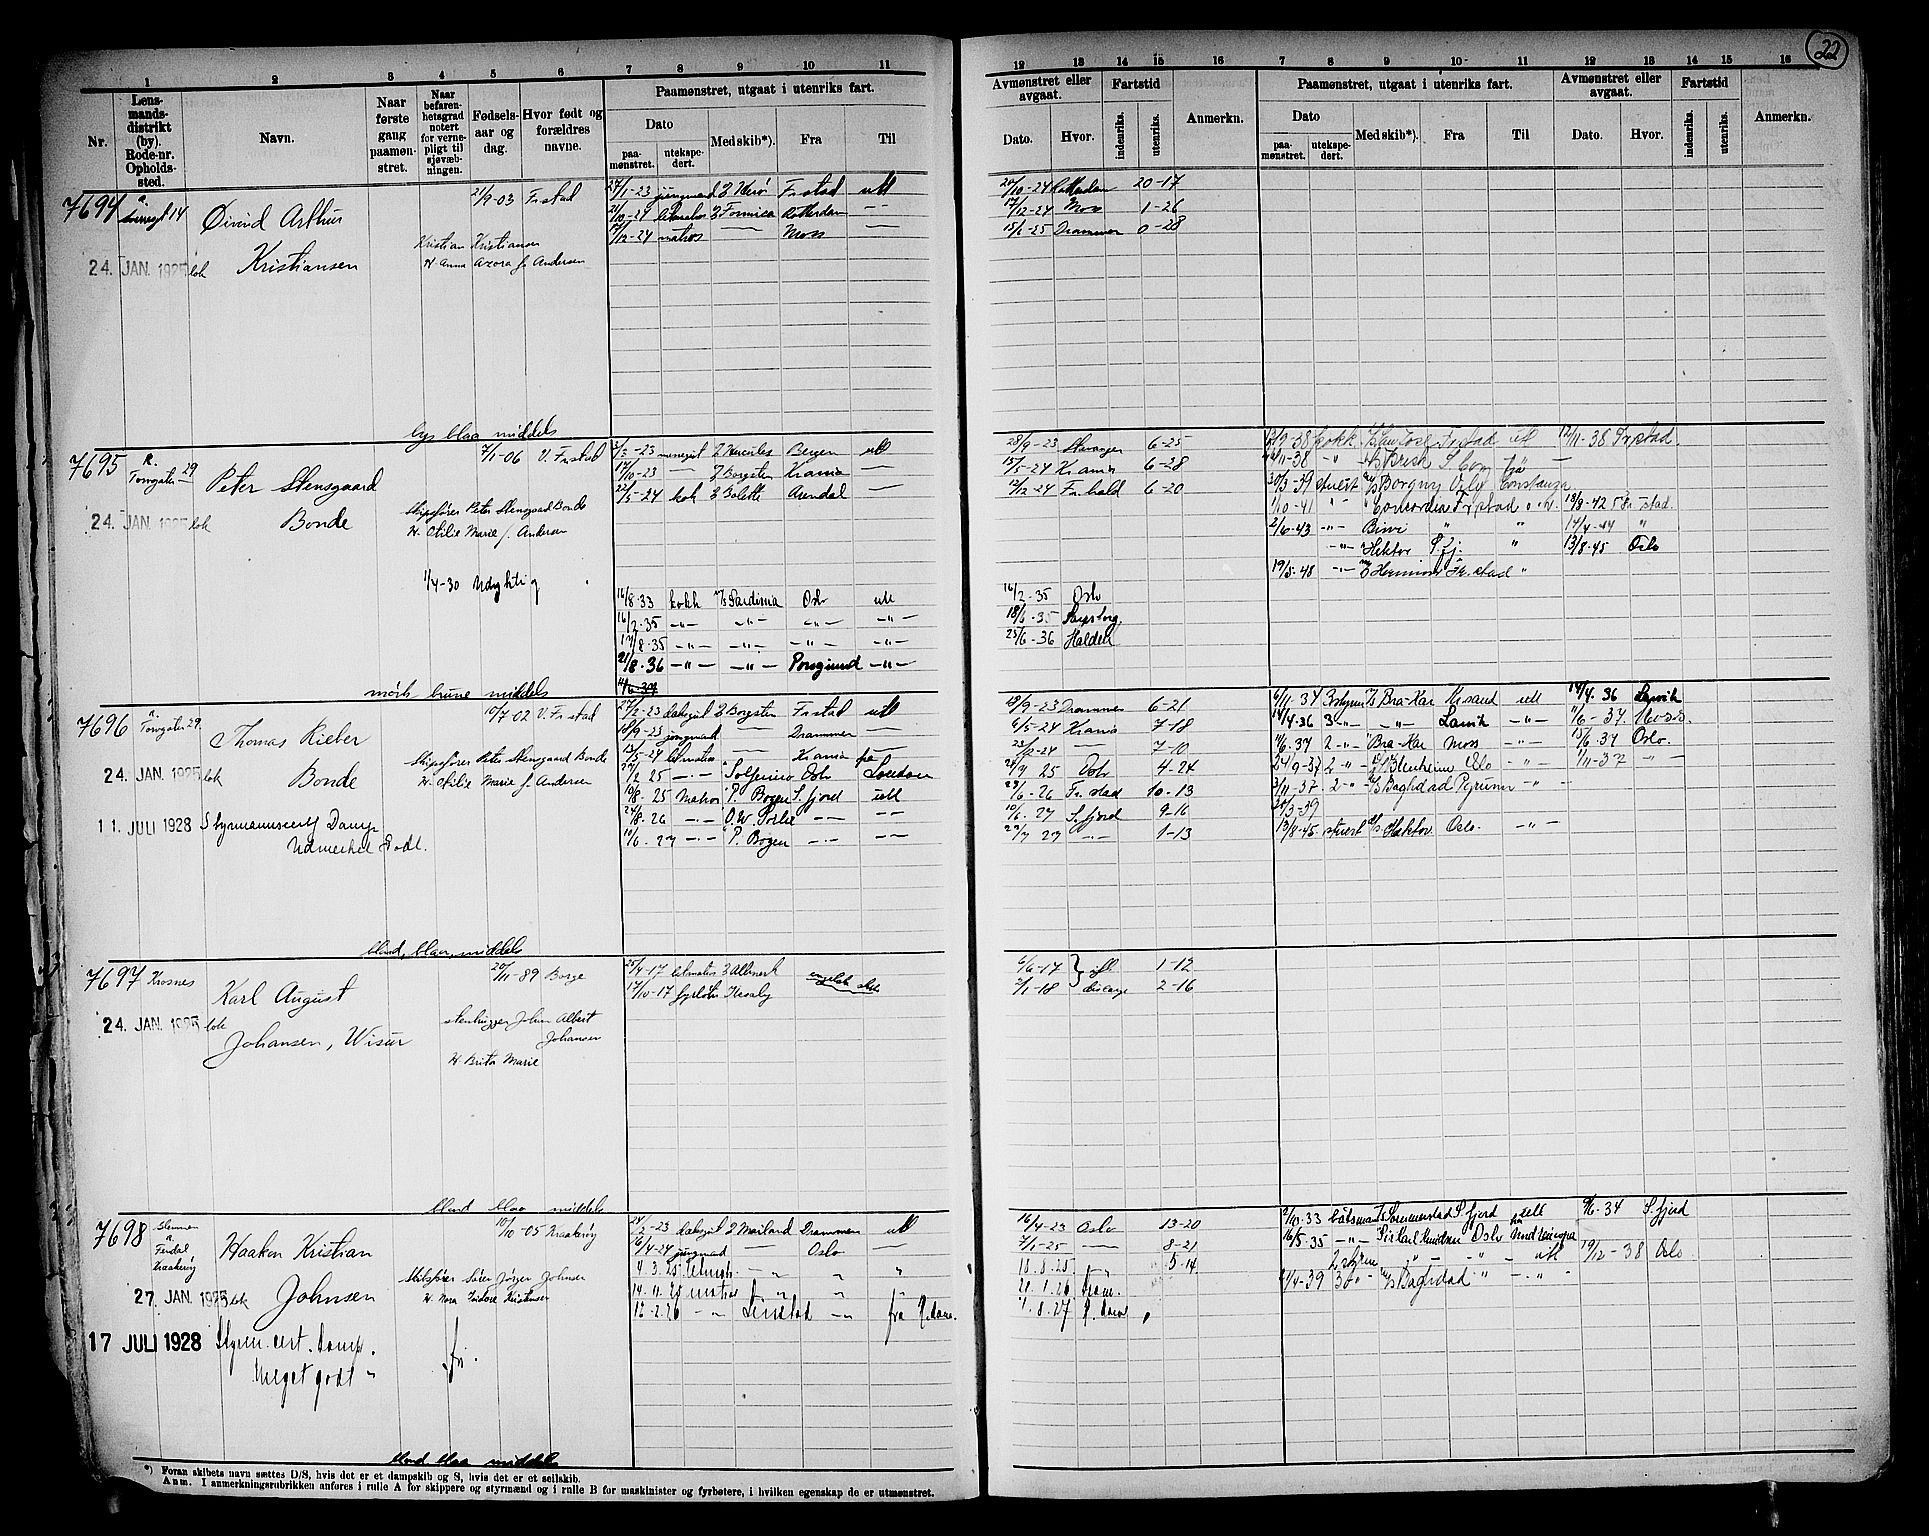 22
1 2 3 4 5 6 7 8 9 10 11
Nr.
Lensmandsdistrikt (by). Rode-nr. Opholdssted.
Navn.
Naar første gang paamønstret.
Naar befarenhetsgrad notert for vernepligt til sjøvæbningen.
Fødselsaar og dag.
Hvor født og forældres navne.
Paamønstret, utgaat i utenriks fart.
Dato
paamønstret.
utekspedert.
Med skib*).
Fra
Til
12 13 14 15 16 7 8 9 10 11 12 13 14 15 16
Avmønstret eller avgaat.
Dato.
Hvor.
Fartstid
indenriks.
utenriks.
Anmerkn.
Paamønstret, utgaat i utenriks fart.
Dato
paamønstret.
utekspedert.
Med skib*).
Fra
Til
Avmønstret eller avgaat.
Dato.
Hvor.
Fartstid
indenriks.
utenriks.
Anmerkn.
7694
Øivind Arthur
Kristiansen
24. JAN. 1925 lok
21/9-03 Fr.stad
Kristian Kristiansen
H. Anna Azora f. Andersen
27/1-23 jungmand Fr.stad utl
21/10-24 Formica Rotterdam — —
17/12-24 matros — Moss —
20/10-24 Rotterdam 20-17
17/12-24 Moss 1-26
15/1-25 Drammen 0-28
lys blaa middels
7695 R.
Torvgaten 29
Peter Stensgaard
Bonde
24. JAN. 1925 lok
7/1-06 V. Fr.stad
Skipsfører Peter Stensgaard Bonde
H. Otilie Marie f. Andersen
1/4-30 Udygktig
3/3-23 messegut Hercules Bergen utl
17/10-23 — Borgsten Krania —
22/5-24 kok Bolette Arendal —
16/8.33 kokk Sardinia Oslo utl
16/2.35 -"- -"- -"- -"-
17/8.35 -"- -"- -"- -"-
21/8.36 -"- -"- Porsgrund -"-
28/9-23 Stavanger 6-25
15/5-24 Krania 6-28
12/12-24 Fr.hald 6-20
16/2-35 Oslo
18/6-35 Sarpsborg
25/6-36 Halden
kokk Fr.stad utl 12/11-38 Fr.stad.
11-38 " Brisk
30/3-39 stuert Borgny Oslo Constanza
1/10-41 " Concordia Fr.stad 18/9-42 Fr.stad.
2/6-43 -"- " " 17/4-44 "
-"- Hektor S.fj. " 13/8-45 Oslo
19/5-48 -"- Fr.stad "
mørk brune middels
7696
Torvgaten 29.
Thomas Rieber
Bonde
24. JAN. 1925 lok
11. JULI 1928 Styrmannscertf Damp
Udmerket Godt.
10/7-02 V. Fr.stad
Skipsfører Peter Stensgaard Bonde
H. Otilie Marie f. Andersen
27/2-23 dæksgut Borgsten Fr.stad utl
18/9-23 jungmand — Drammen —
13/5-24 letmatros — Krania fra
2 25 -"- Solferino Oslo London
19/8. 25 Matros P. Bogen S.fjord utl
24/8.26 -"- O.W. — —
10/6.27 -"- P. Bogen -"- — —
18/9-23 Drammen 6-21
6/5-24 Krania 7-18
23/12-24 — 7-10
25 Oslo 4-24
29/6-26 Fr.stad 10-13
10/6.27 S.fjord 9-16
29/7 27 -"- 1-13
6/11-34 3 styrm Bra-Kar Kr.sand utl 14/4.36 Larvik
14/4.36 3 -"- -"- Larvik -"- 11/6-37 Moss
11/6.37 2 -"- Bra-Kar Moss -"- 15/6.37 Oslo.
24/9-37 2 -"- Blenheim Oslo -"- 1/11-37 -"-
3/11-37. 2 -"- Baghdad -"-
20/3-39
13/8-45. stuert Hektor Oslo. -"-
blond, blaa, middels
7697 Krosnes
Karl August
Johansen, Wisur
24. JAN. 1925 lok
20/11-89 Borge
stenhugger John Albert
Johansen
H. Brita Marie
25/4-17 letmatros
17/10-17
6/6-17 1-12
2/1-18 2-16
blond blaa middels
7698
Haakon Kristian
Johnsen
27. JAN. 1925 lok
17 JULI 1928 Styrm. cert. Damp.
Meget godt
fri.
10/10-05 Kraakerøy
Skibsfører Søren Jørgen Johnsen
H. Nora Isidore Kristensen
24/2-23 dæksgut Mailand Drammen utl
6/4-24 jungmand — Oslo —
4.3.25 letmatr. — " "
14.11.25 matros " "
12-2.26 -"- -"- fra
16/4-23 Oslo 13-20
7/1-25 — 8-21
18.8.25 " 5-14
21.1.26 Dram.
1.8.27
2/10.33 båtsman S.fjord utl 9/6-34 S.fjord
16/5.35 -"- Oslo
2 styrm " -"- utl 19/12-38 Oslo
21/4-39 Baghdad " -"-
blond blaa middels
*) Foran skibets navn sættes D/S, hvis det er et dampskib og S, hvis det er et seilskib.
Anm. I anmerkningsrubrikken anføres i rulle A for skippere og styrmænd og i rulle B for maskinister og fyrbøtere, i hvilken egenskap de er utmønstret.